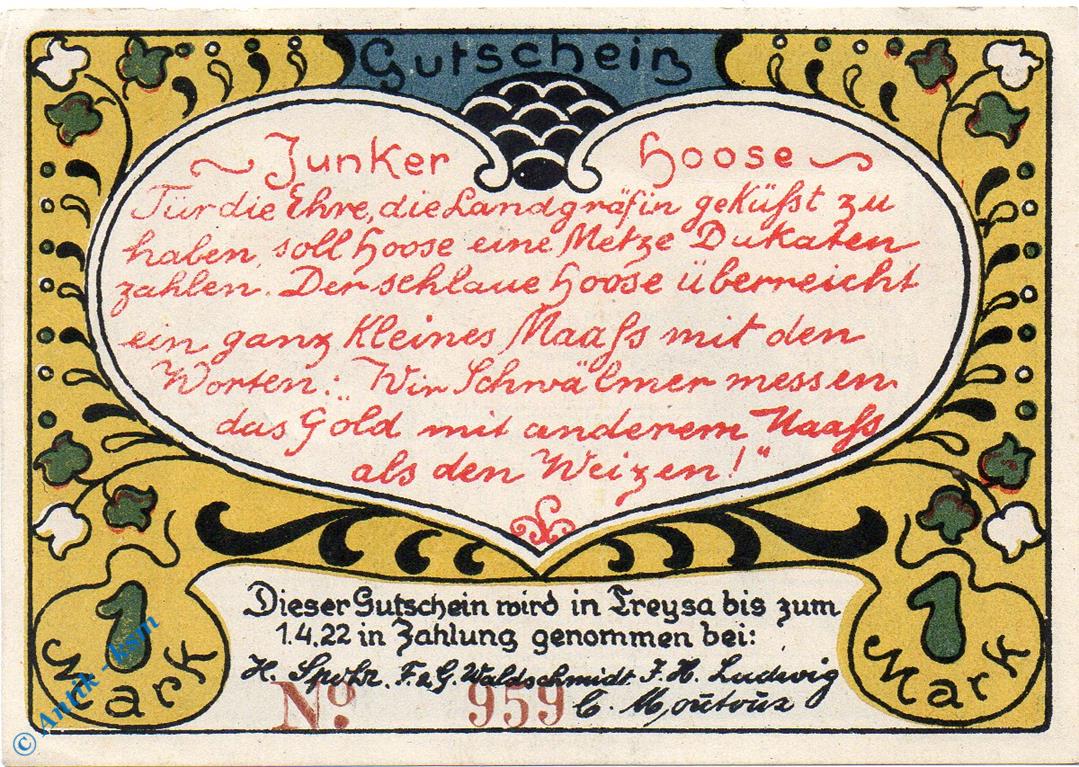 Gutschein
Junker Hoose
Für die Ehre, die Landgräfin geküßt zu
haben, soll Hoose eine Metze Dukaten
zahlen. Der schlaue Hoose überreicht
ein ganz kleines Maaß mit den
Worten: "Wir Schwälmer messen
das Gold mit anderem Maaß
als den Weizen!"
Dieser Gutschein wird in Treysa bis zum
1.4.22 in Zahlung genommen bei:
H. Spohr. F. & G. Waldschmidt. J. H. Ludwig
C. Moutoux
No. 959
1 Mark
1 Mark
© Antik-ksm